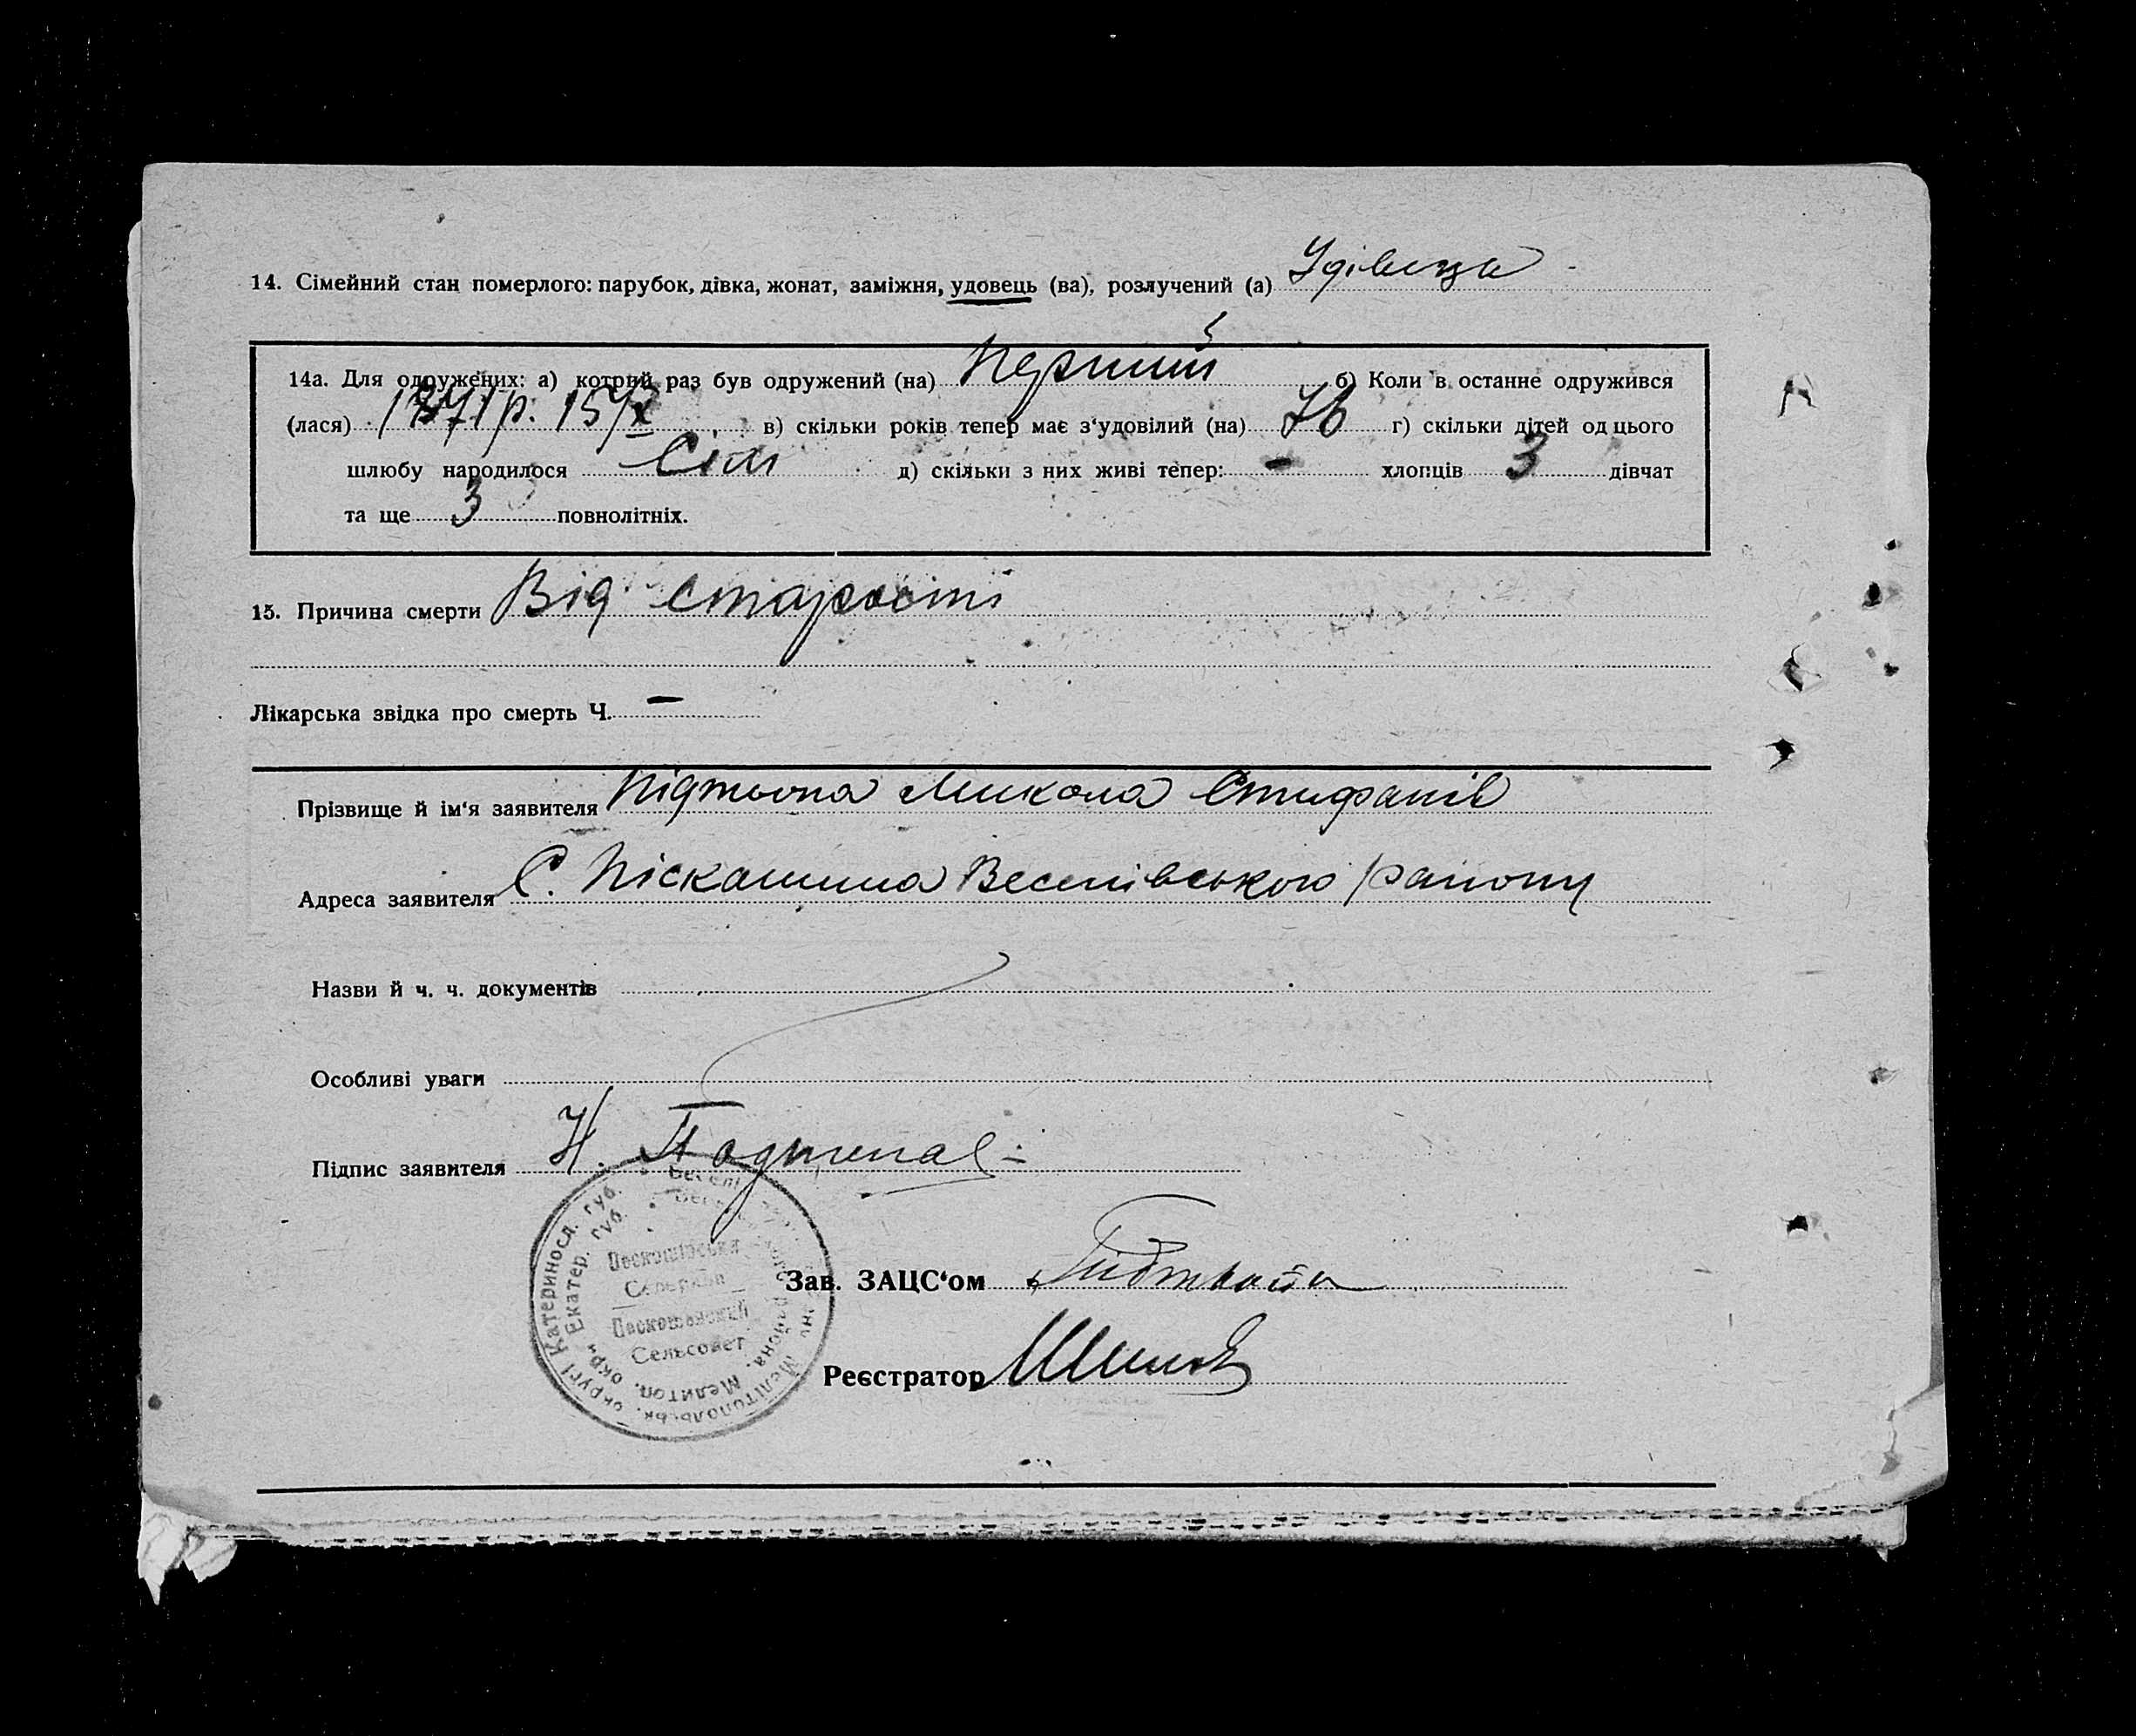 14. Сімейний стан померлого: парубок, дівка, жонат, заміжня, удовець (ва), розлучений (а) Удівица
14а. Для одружених: а) котрий раз був одружений (на) Перший б) Коли в останне одружився
(лася) 1871 р. 15/X в) скільки років тепер має з'удовілий (на) 76 г) скільки дітей од цього
шлюбу народилося Сім д) скільки з них живі тепер: - хлопців 3 дівчат
та ще 3 повнолітніх.
15. Причина смерти Від старости
Лікарська звідка про смерть Ч. -
Прізвище й ім'я заявителя Микола Стифанів
Адреса заявителя С. Піскашина Веселівського району
Назви й ч. ч. документів
Особливі уваги
Підпис заявителя Н.
Катериносл. губ. Мелітопольськ. округі
Екатер. губ. Мелитоп. окр. района.
Сельсовет
Зав. ЗАЦС'ом
Реєстратор